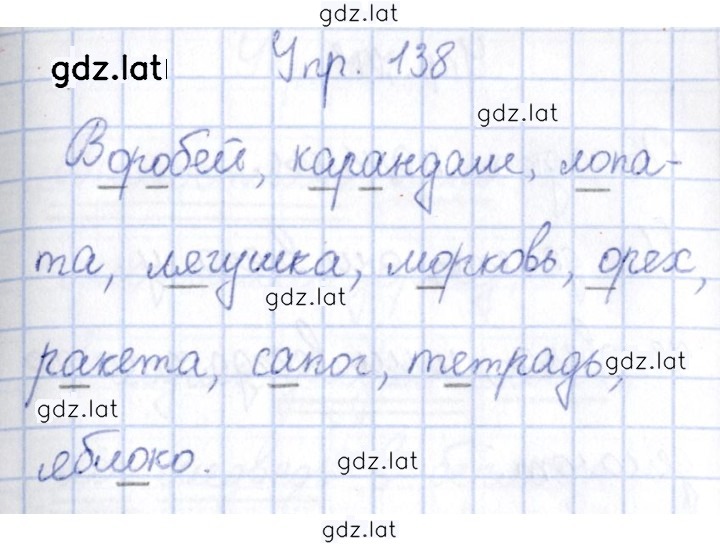 gdz.lat
gdz.lat
Упр. 138
gdz.lat
Воробей, карандаш, лопа-
та, лягушка, морковь, орех,
gdz.lat
ракета, сапог, тетрадь,
gdz.lat
gdz.lat
яблоко.
gdz.lat
gdz.lat